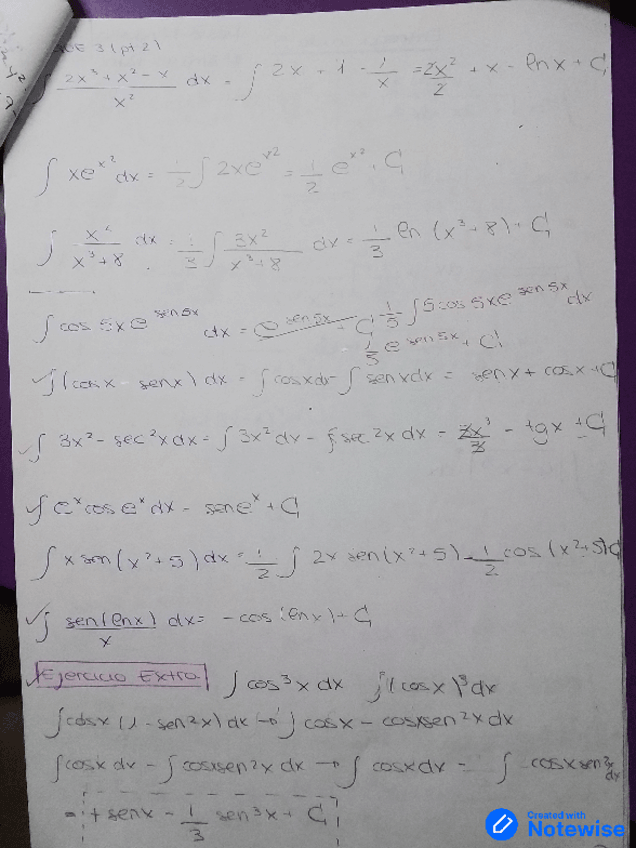 3 (pt 2)
∫ (2x³ + x² - x)/x² dx = ∫ 2x + 1 - 1/x = 2x²/2 + x - ln x + C
∫ xe^(x²) dx = 1/2 ∫ 2xe^(x²) = 1/2 e^(x²) + C
∫ x²/(x³+8) dx = 1/3 ∫ 3x²/(x³+8) dx = 1/3 ln (x³+8) + C
∫ cos 5x e^(sen 5x) dx = e^(sen 5x) + C 1/5 ∫ 5 cos 5x e^(sen 5x) dx
1/5 e^(sen 5x) + C
✓ ∫ (cos x - sen x) dx = ∫ cos x dx - ∫ sen x dx = sen x + cos x + C
✓ ∫ 3x² - sec²x dx = ∫ 3x² dx - ∫ sec²x dx = 3x³/3 - tg x + C
✓ ∫ e^x cos e^x dx = sen e^x + C
∫ x sen (x²+5) dx = 1/2 ∫ 2x sen (x²+5) = -1/2 cos (x²+5) + C
✓ ∫ sen(ln x)/x dx = -cos (ln x) + C
✓ Ejercicio Extra ∫ cos³x dx ∫ (cos x)³ dx
∫ cos x (1 - sen²x) dx → ∫ cos x - cos x sen²x dx
∫ cos x dx - ∫ cos x sen²x dx → ∫ cos x dx - ∫ cos x sen²x dx
= + sen x - 1/3 sen³x + C
Created with
Notewise